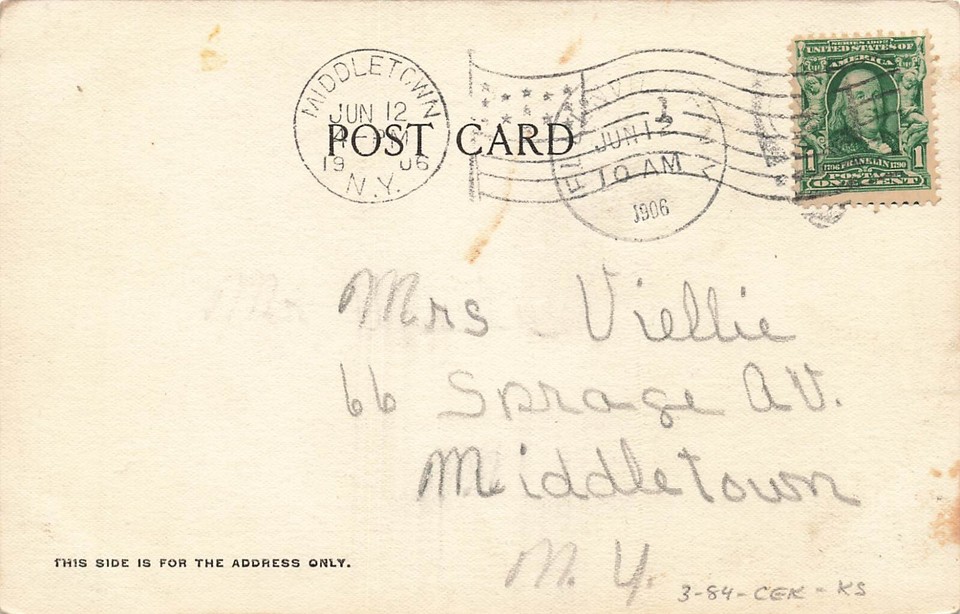 MIDDLETOWN
JUN 12
19 06
N.Y.
JUN 12
10 AM
1906
SERIES 1902
UNITED STATES OF
AMERICA
1 1706 FRANKLIN 1790 1
POSTAGE
ONE CENT
POST CARD
Mrs Viellie
66 Sprage AV.
Middletown
N. Y.
THIS SIDE IS FOR THE ADDRESS ONLY.
3-84-CEK-KS